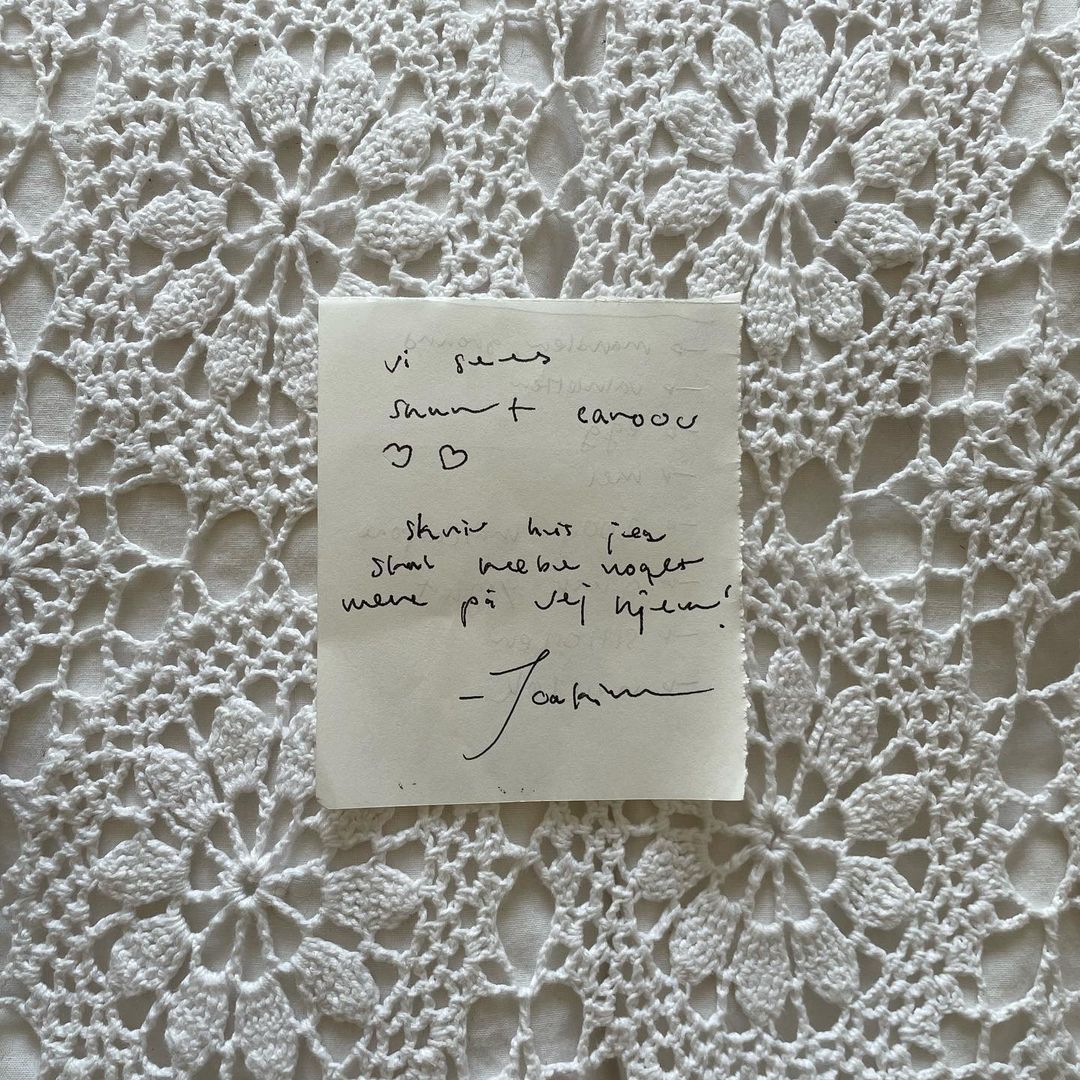 vi sees
snart
♡ ♡
skriv hvis jeg
skal købe noget
mere på vej hjem!
- Joakim